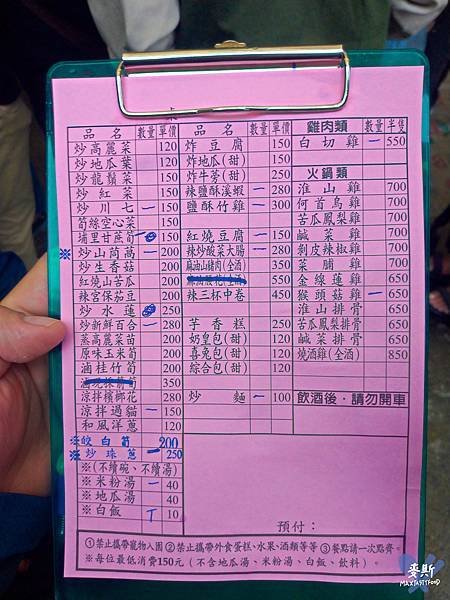 品名 數量 單價
炒高麗菜 120
炒地瓜葉 120
炒龍鬚菜 150
炒紅菜 150
炒川七 一 150
筍絲空心菜 150
埔里甘蔗筍 150
※ 炒山茼蒿 一 200
炒生香菇 200
紅燒山苦瓜 200
辣宮保茄豆 200
炒水蓮 250
炒新鮮百合 一 280
蒸高麗菜苗 200
原味玉米筍 200
滷桂竹筍 200
350
涼拌檳榔花 280
涼拌過貓 一 150
和風洋蔥 120
※皎白筍 200
※炒珠蔥 一 250
※(不續碗、不續湯)
※米粉湯 一 40
※地瓜湯 40
※白飯 T 10
品名 數量 單價
炸豆腐 150
炸地瓜(甜) 150
炸牛蒡(甜) 250
辣鹽酥溪蝦 一 280
鹽酥竹雞 一 300
紅燒豆腐 一 150
辣炒酸菜大腸 一 280
麻油山豬肉(全酒) 350
550
辣三杯中卷 450
芋香糕 250
奶皇包(甜) 120
喜兔包(甜) 120
綜合包(甜) 120
炒麵 一 100
雞肉類 數量 半隻
白切雞 一 550
火鍋類
淮山雞 700
何首烏雞 700
苦瓜鳳梨雞 700
鹹菜雞 700
剝皮辣椒雞 700
菜脯雞 700
金線蓮雞 650
猴頭菇雞 一 650
淮山排骨 650
苦瓜鳳梨排骨 650
鹹菜排骨 650
燒酒雞(全酒) 850
飲酒後,請勿開車
預付：
①禁止攜帶寵物入園 ②禁止攜帶外食蛋糕、水果、酒類等等 ③餐點請一次點齊。
※每位最低消費150元(不含地瓜湯、米粉湯、白飯、飲料)。
麥斯
MAXTASTFOOD